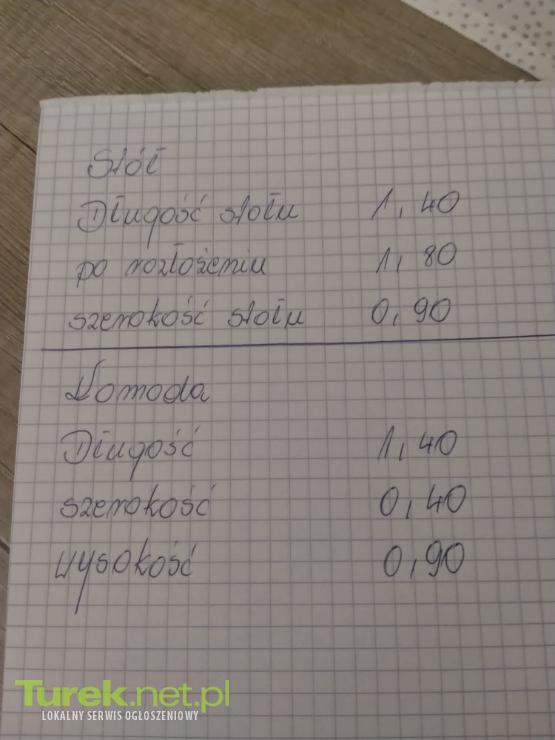 Stół
Długość stołu 1,40
po rozłożeniu 1,80
szerokość stołu 0,90
Komoda
Długość 1,40
szerokość 0,40
wysokość 0,90
Turek.net.pl
LOKALNY SERWIS OGŁOSZENIOWY